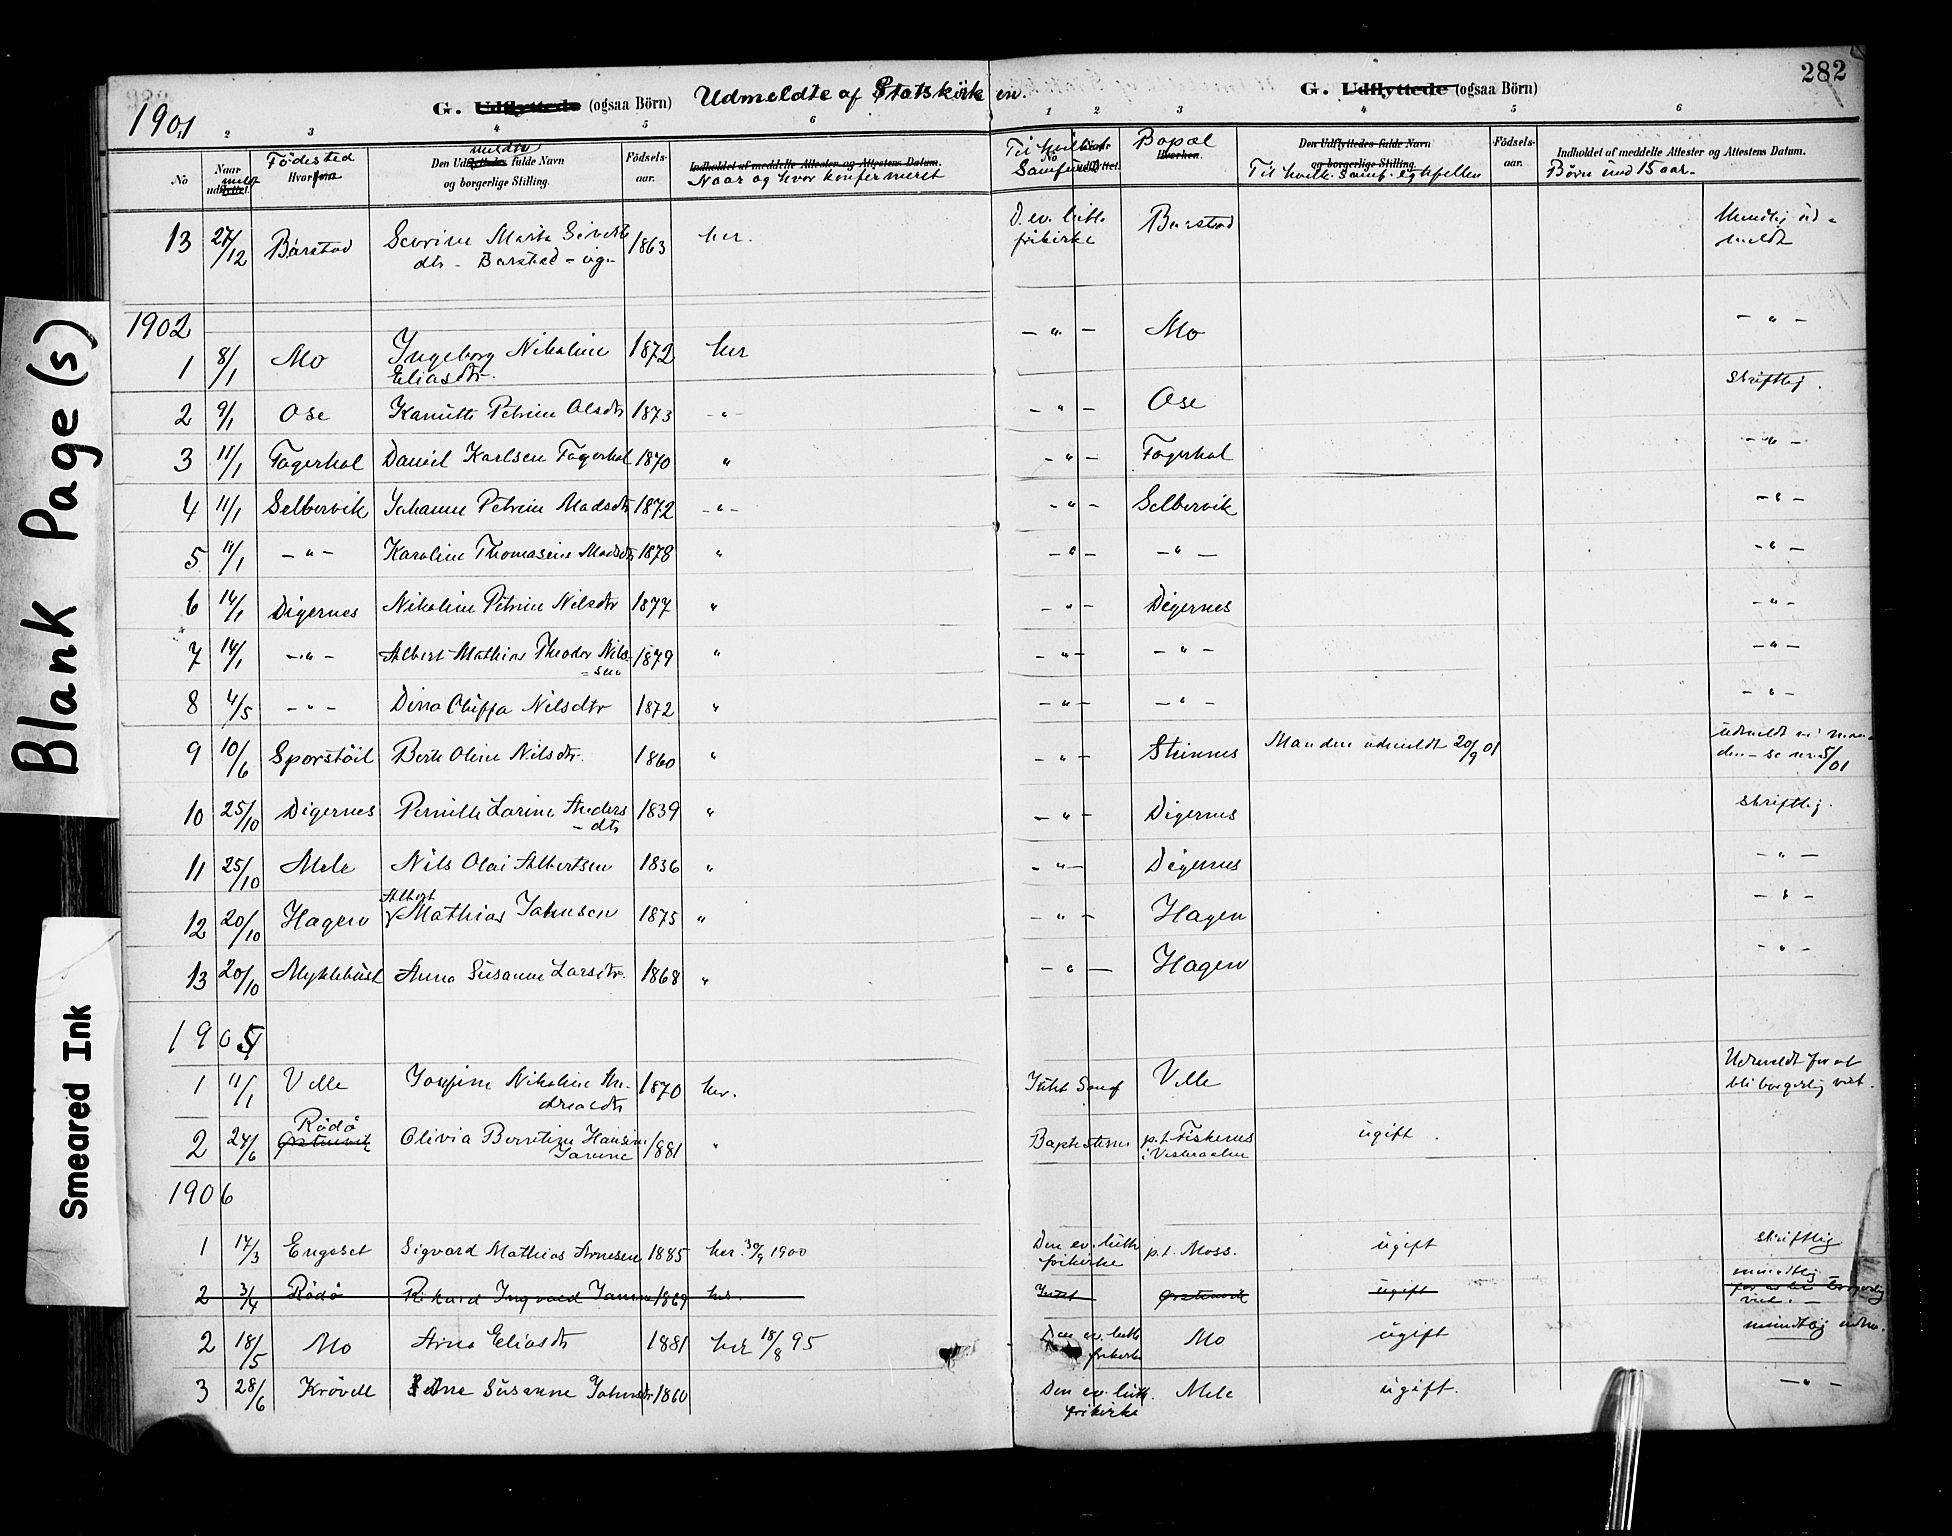 282
G. Udflyttede (ogsaa Börn) Udmeldte af Statskirken.
G. Udflyttede (ogsaa Börn)
1901
2 3 4 5 6
1 2 3 4 5 6
No Naar udflyttet. Födested Hvorfra Den Udflyttedes fulde Navn og borgerlige Stilling. Födsels-aar. Indholdet af meddelte Attester og Attestens Datum. Naar og hvor konfirmeret
Til hvilket Samfund Bopæl Hvorhen. Den Udflyttedes fulde Navn og borgerlige Stilling. Födsels-aar. Indholdet af meddelte Attester og Attestens Datum.
Börn und 15 aar.
13 27/12 Barstad Severine Marte Siverts 1863 her. D. ev. luth. Barstad Mundtlig ud-
dtr - Barstad - ug. frikirke meldt
1902
1 8/1 Mo Ingeborg Nikoline 1872 her - " - Mo - " -
Eliasdtr.
2 9/1 Ose Kanutte Petrine Olsdtr 1873 - " - - " - Ose skriftlig.
3 11/1 Fagerhol Daniel Karlsen Fagerhol 1870 " - " - Fagerhol - " -
4 11/1 Selbervik Johanne Petrine Madsdtr 1872 - " - - " - Selbervik - " -
5 11/1 - " - Karoline Thomasine Madsdtr 1878 " - " - - " - - " -
6 14/1 Digernes Nikoline Petrine Nilsdtr 1877 " - " - Digernes - " -
7 14/1 - " - Albert Mathias Theodor Nils- 1879 " - " - - " - - " -
= sen
8 4/5 - " - Dina Nilsdtr 1872 " - " - - " - - " -
9 10/6 Sporstöil Berte Oline Nilsdtr. 1860 " - " - Steinnes Manden udmeldt 20/9 01 udmeldt m/ man-
den - se nr. 5/01
10 25/10 Digernes Pernille Larine Anders 1839 " - " - Digernes skriftlig.
- dtr
11 25/10 Mele Nils Olai Albertsen 1836 " - " - Digernes - " -
Albert
12 20/10 Hagen Mathias Johnsen 1875 " - " - Hagen - " -
13 20/10 Myklebust Anna Susanne Larsdtr. 1868 " - " - Hagen - " -
1905
1 11/1 Velle Josefine Nikoline An- 1870 her. Intet Samf Velle Udmeldt for at
dreasdtr bli borgerlig viet.
Rödö
2 24/6 Ørstenvik Olivia Berntine Hansine 1881 " Baptisterne p.t. Fiskenes ugift.
Janine i Vesteraalen
1906
1 17/3 Engeset Sigvard Mathias Arnesen 1885 her. 30/9 1900 Den ev. luth. p.t. Moss. ugift skriftlig
frikirke
2 3/4 Rödö Rikard Ingvald 1869 her Intet Ørstenvik ugift mundtlig
for at bli borgerlig
viet. -
2 18/5 Mo Arna Eliasdtr 1881 her 18/8 95 Den ev. luth. Mo ugift mundtlig udm.
frikirke
3 28/6 Krövell Ane Susanne Johnsdtr 1860 Den ev. luth. Mele ugift. - " -
frikirke
Blank Page(s)
Smeared Ink